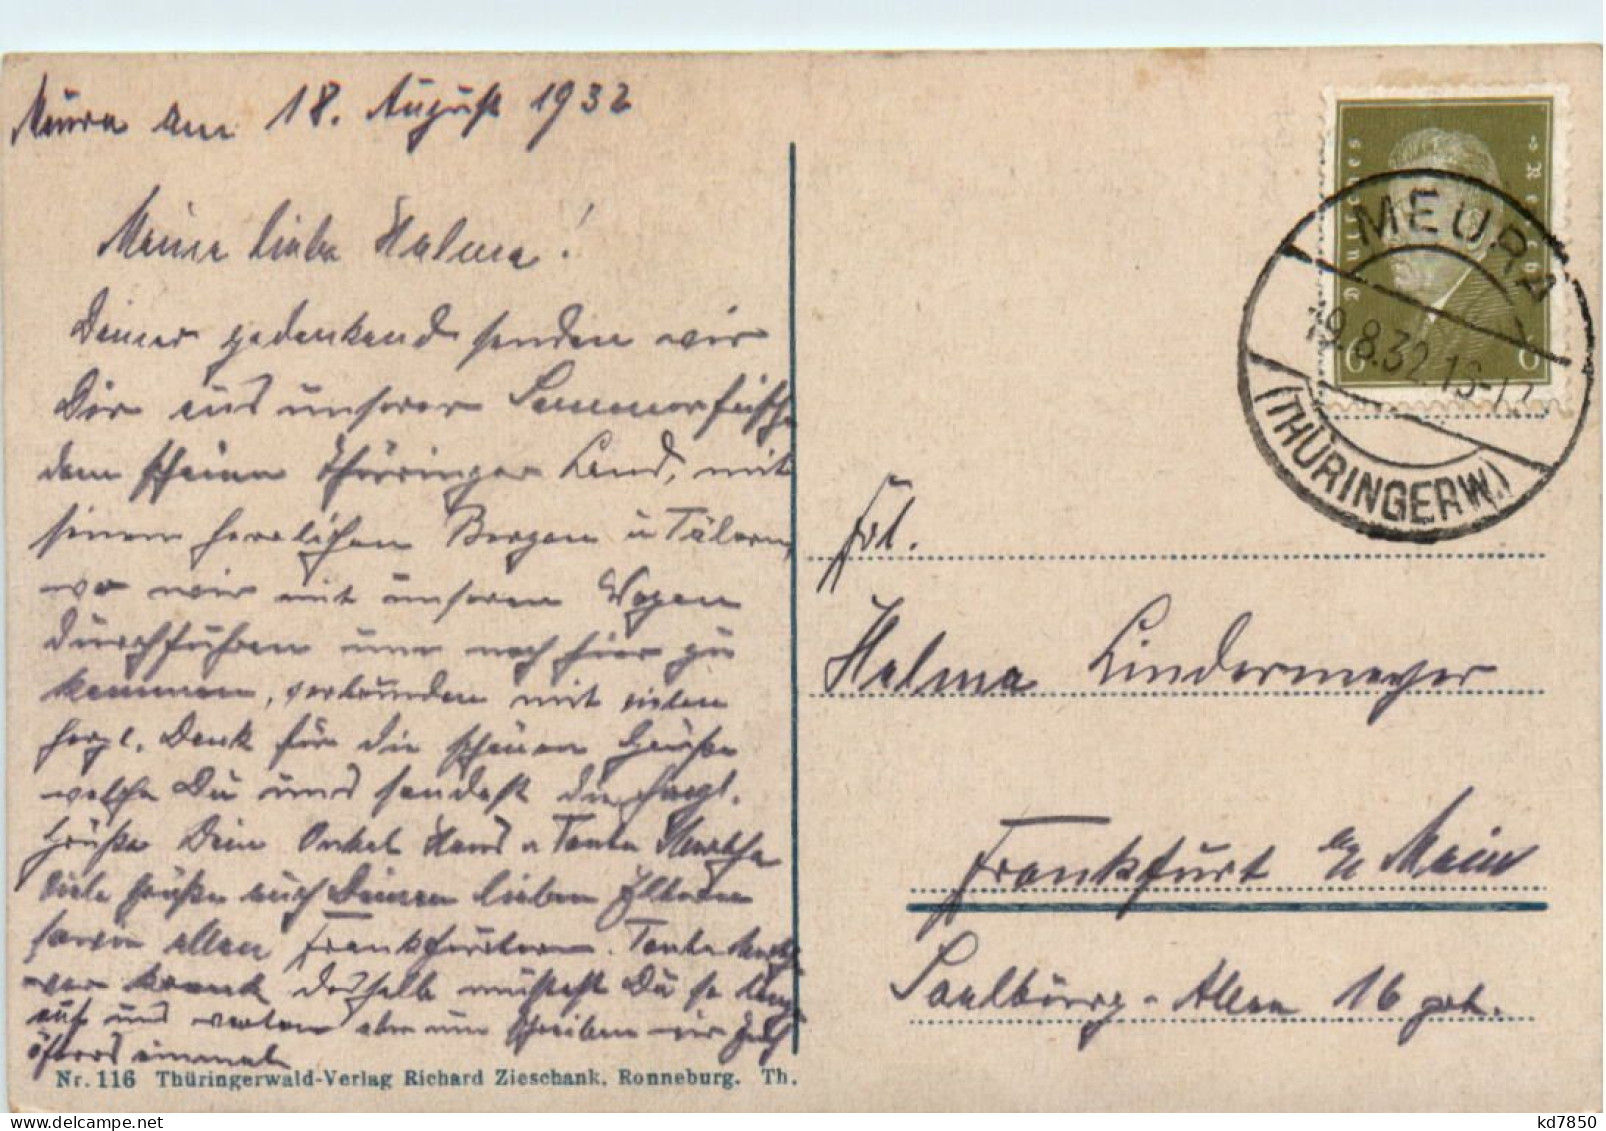 Meura am 18. August 1932
Meine liebe Halma!
Deiner gedenkend senden wir
Dir aus unserer Sommerfrische
dem schönen Thüringer Land, mit
seinen herrlichen Bergen u Tälern,
wo wir mit unserem Wagen
durchfuhren um nach hier zu
kommen, verbunden mit vielen
herzl. Dank für die schönen Grüße
welche Du uns sandest die herzl.
Grüße Dein Onkel Hans u Tante Martha
Viele Grüße auch Deinen lieben Eltern
sowie allen Frankfurtern. Tante Martha
war krank deshalb mußtest Du so lang
auf uns warten aber nun schreiben wir
öfters einmal
Nr. 116 Thüringerwald-Verlag Richard Zieschank, Ronneburg. Th.
Deutsches Reich
6 6
MEURA
19.8.32.16-17
(THÜRINGERW.)
Frl.
Halma Lindermeyer
Frankfurt a/ Main
Saalburg-Allee 16 prt.
kd7850